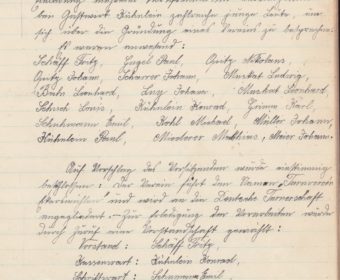 ben Gastwirt Kühnlein zahlreiche junge Leute, um
sich über die Gründung eines Vereins zu besprechen.
Es waren anwesend:
Schäff Fritz, Engel Paul, Opitz Nikolaus,
Opitz Johann, Scheurer Johann, Muskat Ludwig,
Beck Leonhard, Enz Johann, Muskat Leonhard,
Schuck Louis, Kühnlein Konrad, Grimm Karl,
Schuhmann Emil, Kohl Michael, Müller Johann,
Kühnlein Paul, Niederer Matthias, Meier Johann.
Auf Vorschlag des Vorsitzenden wurde einstimmig
beschlossen: Der Verein führt den Namen "Turnverein
und wird an die Deutsche Turnerschaft
angegliedert. – Zur Erledigung der Vorarbeiten wurde
durch Zuruf eine Vorstandschaft gewählt:
Vorstand: Schäff Fritz,
Kassenwart: Kühnlein Konrad,
Schriftwart: Schumann Emil,